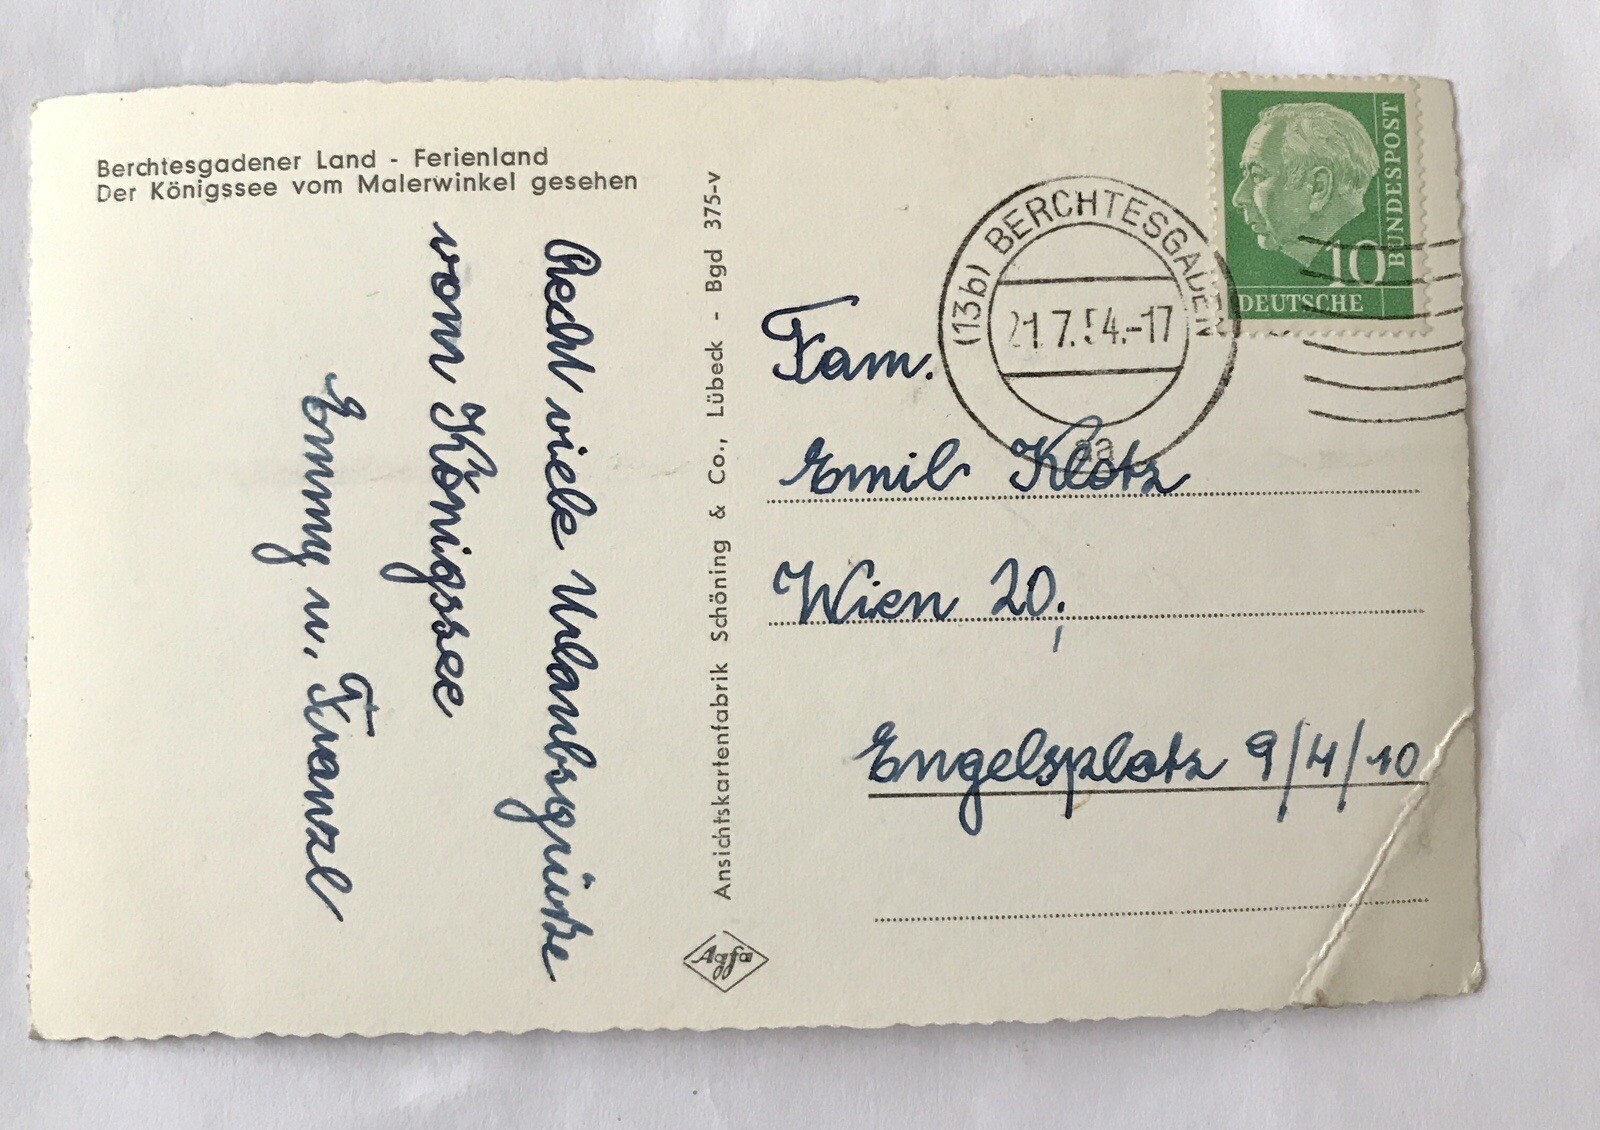 Berchtesgadener Land - Ferienland
Der Königssee vom Malerwinkel gesehen
Recht viele Urlaubsgrüße
vom Königssee
Emmy u. Franzl
Ansichtskartenfabrik Schöning & Co., Lübeck - Bgd 375-v
Agfa
(13b) BERCHTESGADEN
21.7.54.-17
aa
10
BUNDESPOST
DEUTSCHE
Fam.
Emil Klotz
Wien 20,
Engelsplatz 9/4/10